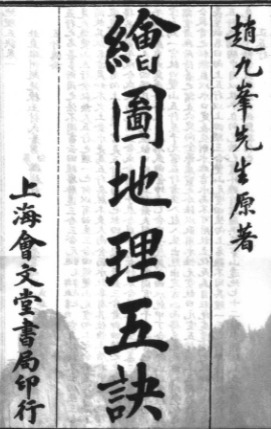 趙九峯先生原著
繪圖地理五訣
上海會文堂書局印行